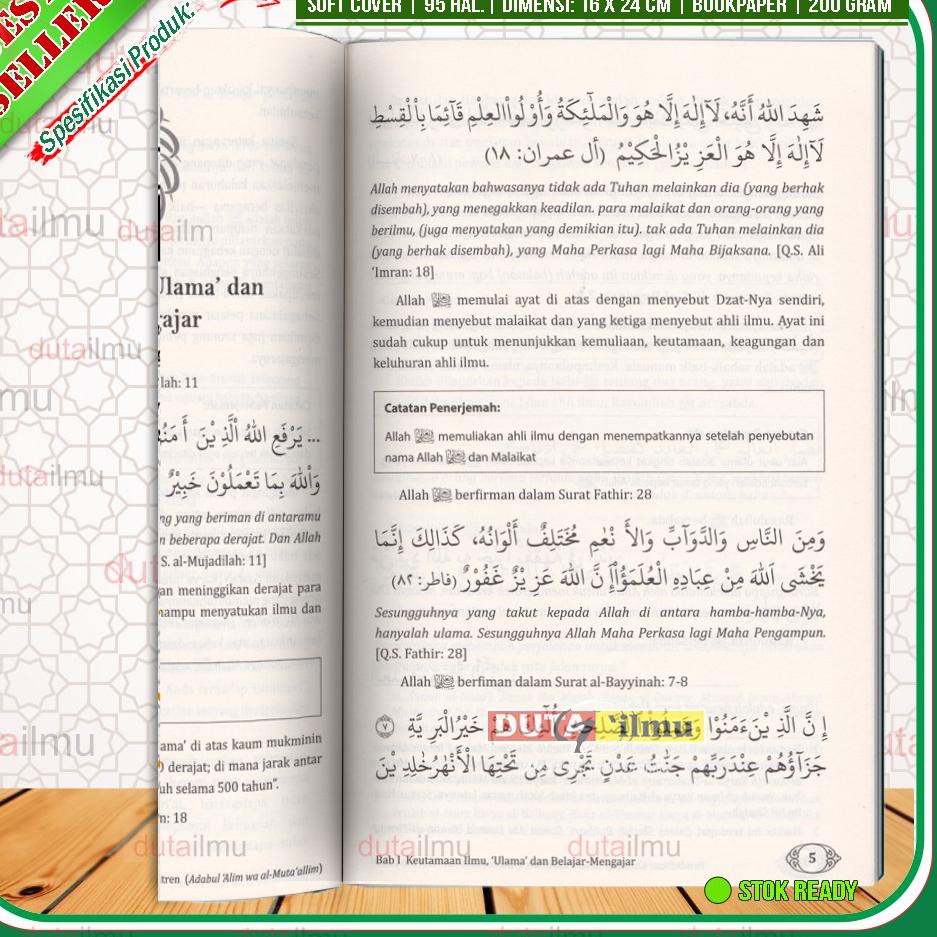 SOFT COVER | 95 HAL. | DIMENSI: 16 X 24 CM | BOOKPAPER | 200 GRAM
SELLER
Spesifikasi Produk:
Ulama’ dan
ajar
lah: 11
... يَرْفَعِ اللهُ الَّذِيْنَ أَمَنُ
وَاللهُ بِمَا تَعْمَلُوْنَ خَبِيْرٌ
ng yang beriman di antaramu
n beberapa derajat. Dan Allah
S. al-Mujadilah: 11]
an meninggikan derajat para
nampu menyatukan ilmu dan
ama’ di atas kaum mukminin
) derajat; di mana jarak antar
uh selama 500 tahun”.
n: 18
tren (Adabul ‘Alim wa al-Muta‘allim)
شَهِدَ اللهُ أَنَّهُ، لَآإِلٰهَ إِلَّا هُوَ وَالْمَلٰٓئِكَةُ وَأُوْلُواْالعِلْمِ قَآئِمًا بِالْقِسْطِ
لَآإِلٰهَ إِلَّا هُوَ الْعَزِيْزُالْحَكِيْمُ (أل عمران: ١٨)
Allah menyatakan bahwasanya tidak ada Tuhan melainkan dia (yang berhak
disembah), yang menegakkan keadilan. para malaikat dan orang-orang yang
berilmu, (juga menyatakan yang demikian itu). tak ada Tuhan melainkan dia
(yang berhak disembah), yang Maha Perkasa lagi Maha Bijaksana. [Q.S. Ali
‘Imran: 18]
Allah ﷻ memulai ayat di atas dengan menyebut Dzat-Nya sendiri,
kemudian menyebut malaikat dan yang ketiga menyebut ahli ilmu. Ayat ini
sudah cukup untuk menunjukkan kemuliaan, keutamaan, keagungan dan
keluhuran ahli ilmu.
Catatan Penerjemah:
Allah ﷻ memuliakan ahli ilmu dengan menempatkannya setelah penyebutan
nama Allah ﷻ dan Malaikat
Allah ﷻ berfirman dalam Surat Fathir: 28
وَمِنَ النَّاسِ وَالدَّوَآبِّ وَالأَ نْعٰمِ مُخْتَلِفٌ أَلْوَانُهُ، كَذَالِكَ إِنَّمَا
يَخْشَى اللهَ مِنْ عِبَادِهِ الْعُلَمَؤُاْإِنَّ اللهَ عَزِيْزٌ غَفُوْرٌ (فاطر: ٨٢)
Sesungguhnya yang takut kepada Allah di antara hamba-hamba-Nya,
hanyalah ulama. Sesungguhnya Allah Maha Perkasa lagi Maha Pengampun.
[Q.S. Fathir: 28]
Allah ﷻ berfiman dalam Surat al-Bayyinah: 7-8
إِنَّ الَّذِيْنَ ءَمَنُوْا خَيْرُالْبَرِيَّةِ ٧
DUTA ilmu
جَزَآؤُهُمْ عِنْدَرَبِّهِمْ جَنّٰتُ عَدْنٍ تَجْرِى مِن تَحْتِهَا الْأَنْهٰرُخٰلِدِيْنَ
Bab I Keutamaan Ilmu, ‘Ulama’ dan Belajar-Mengajar
5
STOK READY
dutailmu